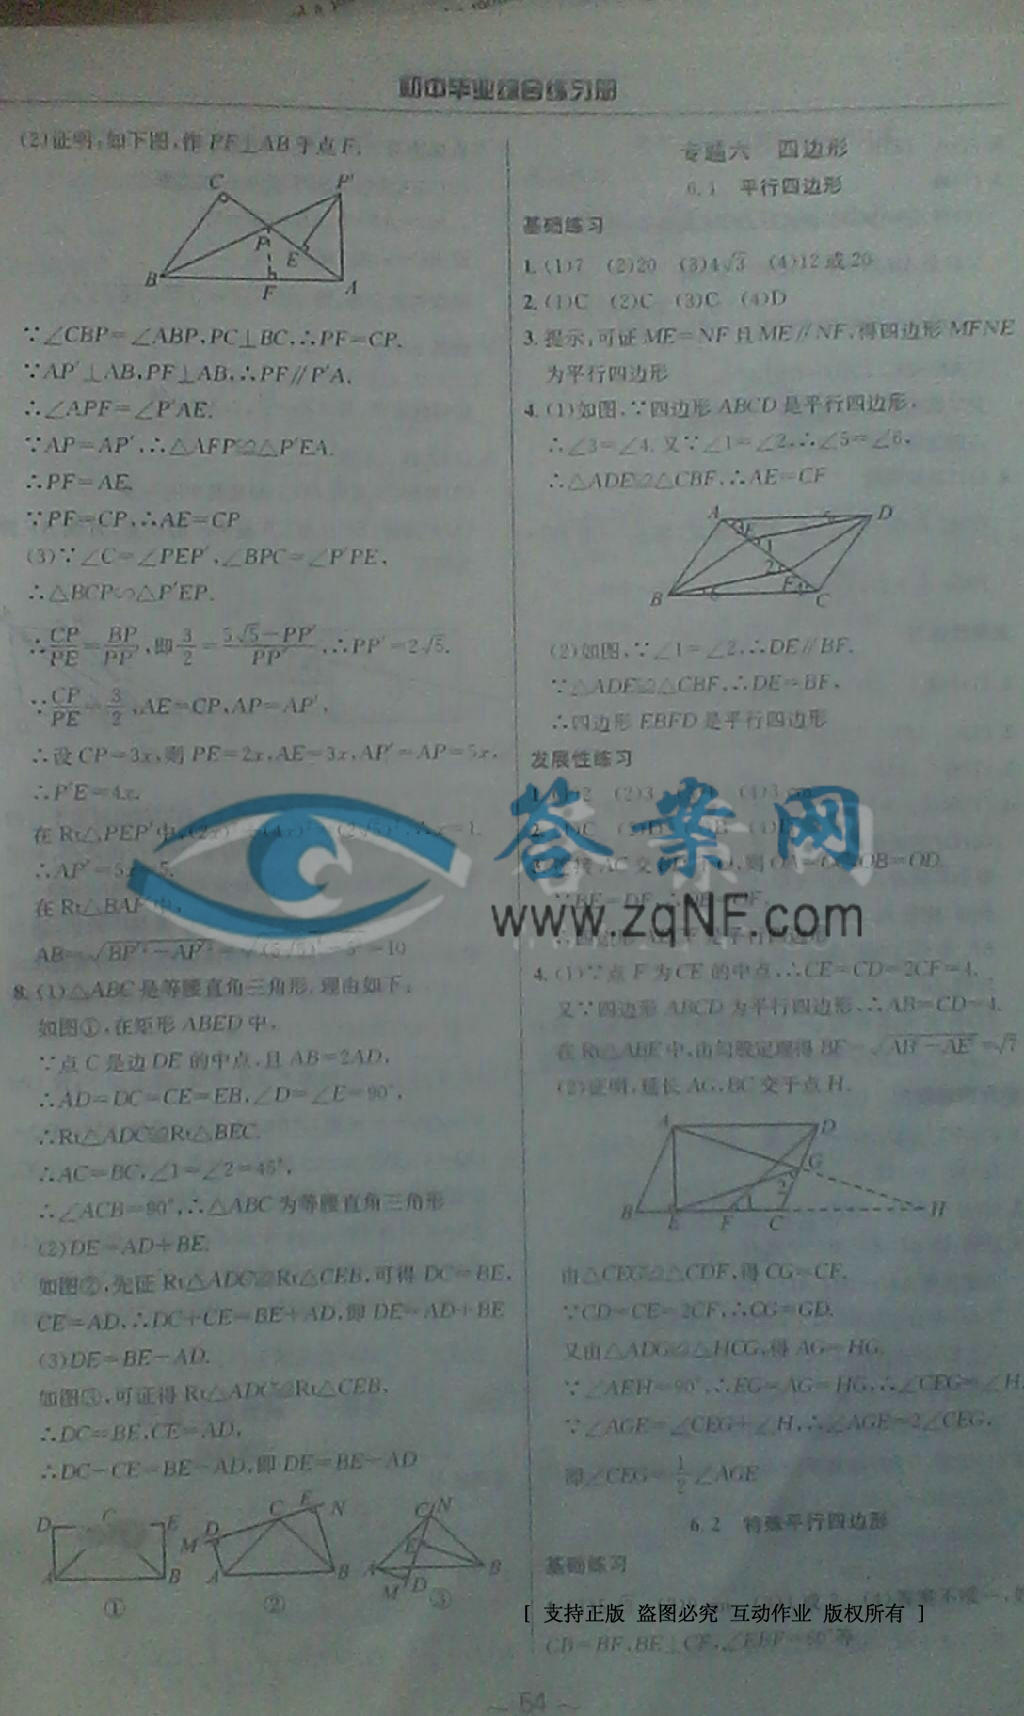 初中毕业综合练习册
(2)证明:如下图,作PF⊥AB于点F.
C P'
P E
B F A
∵∠CBP=∠ABP,PC⊥BC,∴PF=CP.
∵AP'⊥AB,PF⊥AB,∴PF∥P'A.
∴∠APF=∠P'AE.
∵AP=AP',∴△AFP≌△P'EA.
∴PF=AE.
∵PF=CP,∴AE=CP
(3)∵∠C=∠PEP',∠BPC=∠P'PE,
∴△BCP∽△P'EP.
∴CP/PE=BP/PP',即3/2=(5√5-PP')/PP',∴PP'=2√5.
∵CP/PE=3/2,AE=CP,AP=AP',
∴设CP=3x,则PE=2x,AE=3x,AP'=AP=5x,
∴P'E=4x.
在Rt△PEP'中,(2x)²+(4x)²=(2√5)²,∴x=1.
∴AP'=5x=5.
在Rt△BAP'中,
AB=√(BP'²-AP'²)=√((5√5)²-5²)=10
8.(1)△ABC是等腰直角三角形.理由如下:
如图①,在矩形ABED中,
∵点C是边DE的中点,且AB=2AD,
∴AD=DC=CE=EB,∠D=∠E=90°,
∴Rt△ADC≌Rt△BEC.
∴AC=BC,∠1=∠2=45°,
∴∠ACB=90°,∴△ABC为等腰直角三角形
(2)DE=AD+BE.
如图②,先证Rt△ADC≌Rt△CEB,可得DC=BE,
CE=AD,∴DC+CE=BE+AD,即DE=AD+BE
(3)DE=BE-AD.
如图③,可证得Rt△ADC≌Rt△CEB,
∴DC=BE,CE=AD,
∴DC-CE=BE-AD,即DE=BE-AD
D C E
A B
①
M D C E N
A B
②
C N
E
A B
M D
③
专题六 四边形
6.1 平行四边形
基础练习
1.(1)7 (2)20 (3)4√3 (4)12或20
2.(1)C (2)C (3)C (4)D
3.提示,可证ME=NF且ME∥NF,得四边形MFNE
为平行四边形
4.(1)如图,∵四边形ABCD是平行四边形,
∴∠3=∠4.又∵∠1=∠2,∴∠5=∠6,
∴△ADE≌△CBF,∴AE=CF
A D
E 1
2 F
B C
(2)如图,∵∠1=∠2,∴DE∥BF.
∵△ADE≌△CBF,∴DE=BF,
∴四边形EBFD是平行四边形
发展性练习
(4)3
AC交
OB=OD.
∵BE=DF
答案网
www.zqNF.com
4.(1)∵点F为CE的中点,∴CE=CD=2CF=4.
又∵四边形ABCD为平行四边形,∴AB=CD=4.
在Rt△ABE中,由勾股定理得BE=√(AB²-AE²)=√7
(2)证明,延长AG,BC交于点H.
A D
G
2
1
B E F C H
由△CEG≌△CDF,得CG=CF.
∵CD=CE=2CF,∴CG=GD.
又由△ADG≌△HCG,得AG=HG.
∵∠AEH=90°,∴EG=AG=HG,∴∠CEG=∠H.
∵∠AGE=∠CEG+∠H,∴∠AGE=2∠CEG,
即∠CEG=1/2∠AGE
6.2 特殊平行四边形
基础练习
答案不唯一,如
[ 支持正版 盗图必究 互动作业 版权所有 ]
CB=BF,BE⊥CF,∠EBF=60°等
~ 64 ~